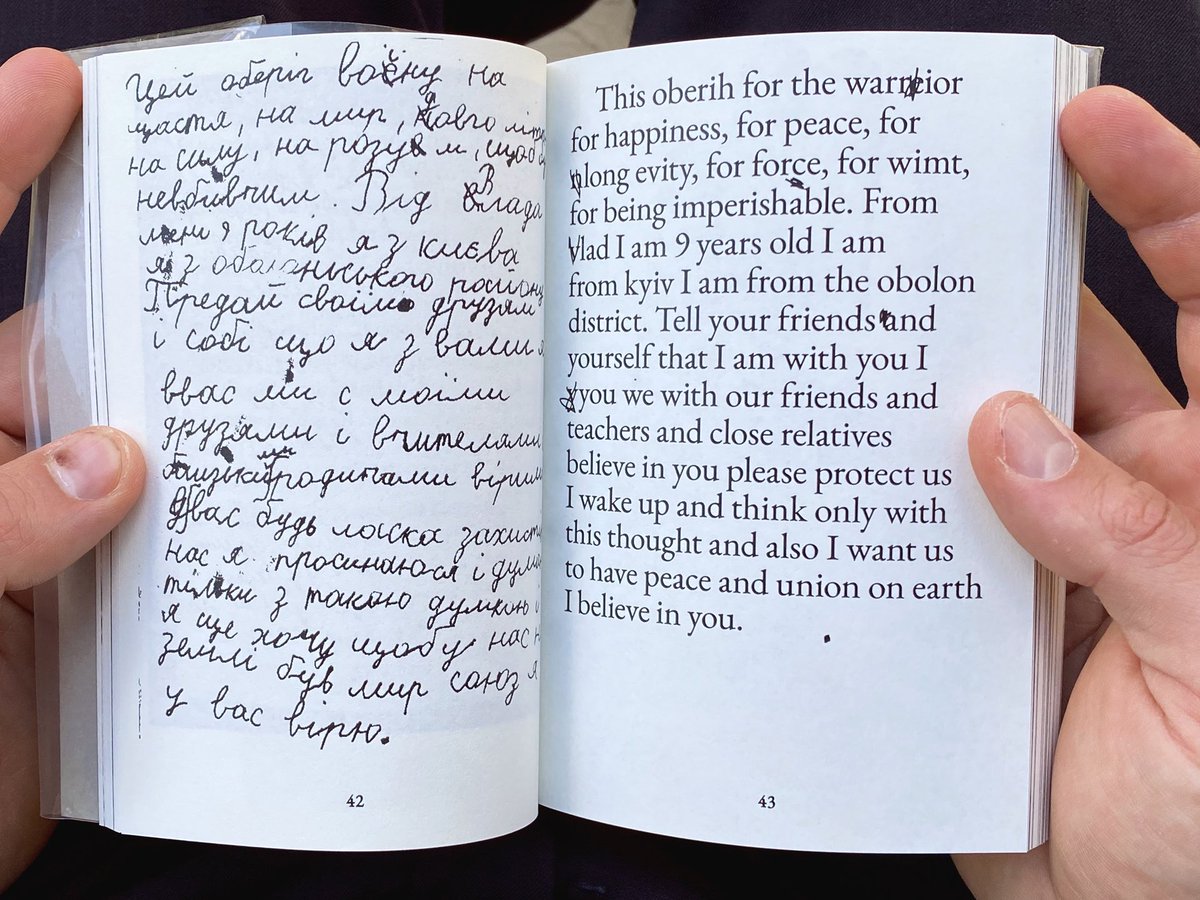 Цей оберіг воїну на
щастя, на мир, довго літ
на силу, на розум, щоб
невбивчим. Від Влада
мені 9 років я з києва
я з оболонського району
Передай своїм друзям
і собі що я з вами я
ввас ми с моїми
друзями і вчителями
близькими родичами вірим
Ввас будь ласка захист
нас я просинаюся і дума
тільки з такою думкою і
я ще хочу щоб у нас н
землі був мир союз я
у вас вірю.
42
This oberih for the warreior
for happiness, for peace, for
long evity, for force, for wimt,
for being imperishable. From
vlad I am 9 years old I am
from kyiv I am from the obolon
district. Tell your friends and
yourself that I am with you I
you we with our friends and
teachers and close relatives
believe in you please protect us
I wake up and think only with
this thought and also I want us
to have peace and union on earth
I believe in you.
43